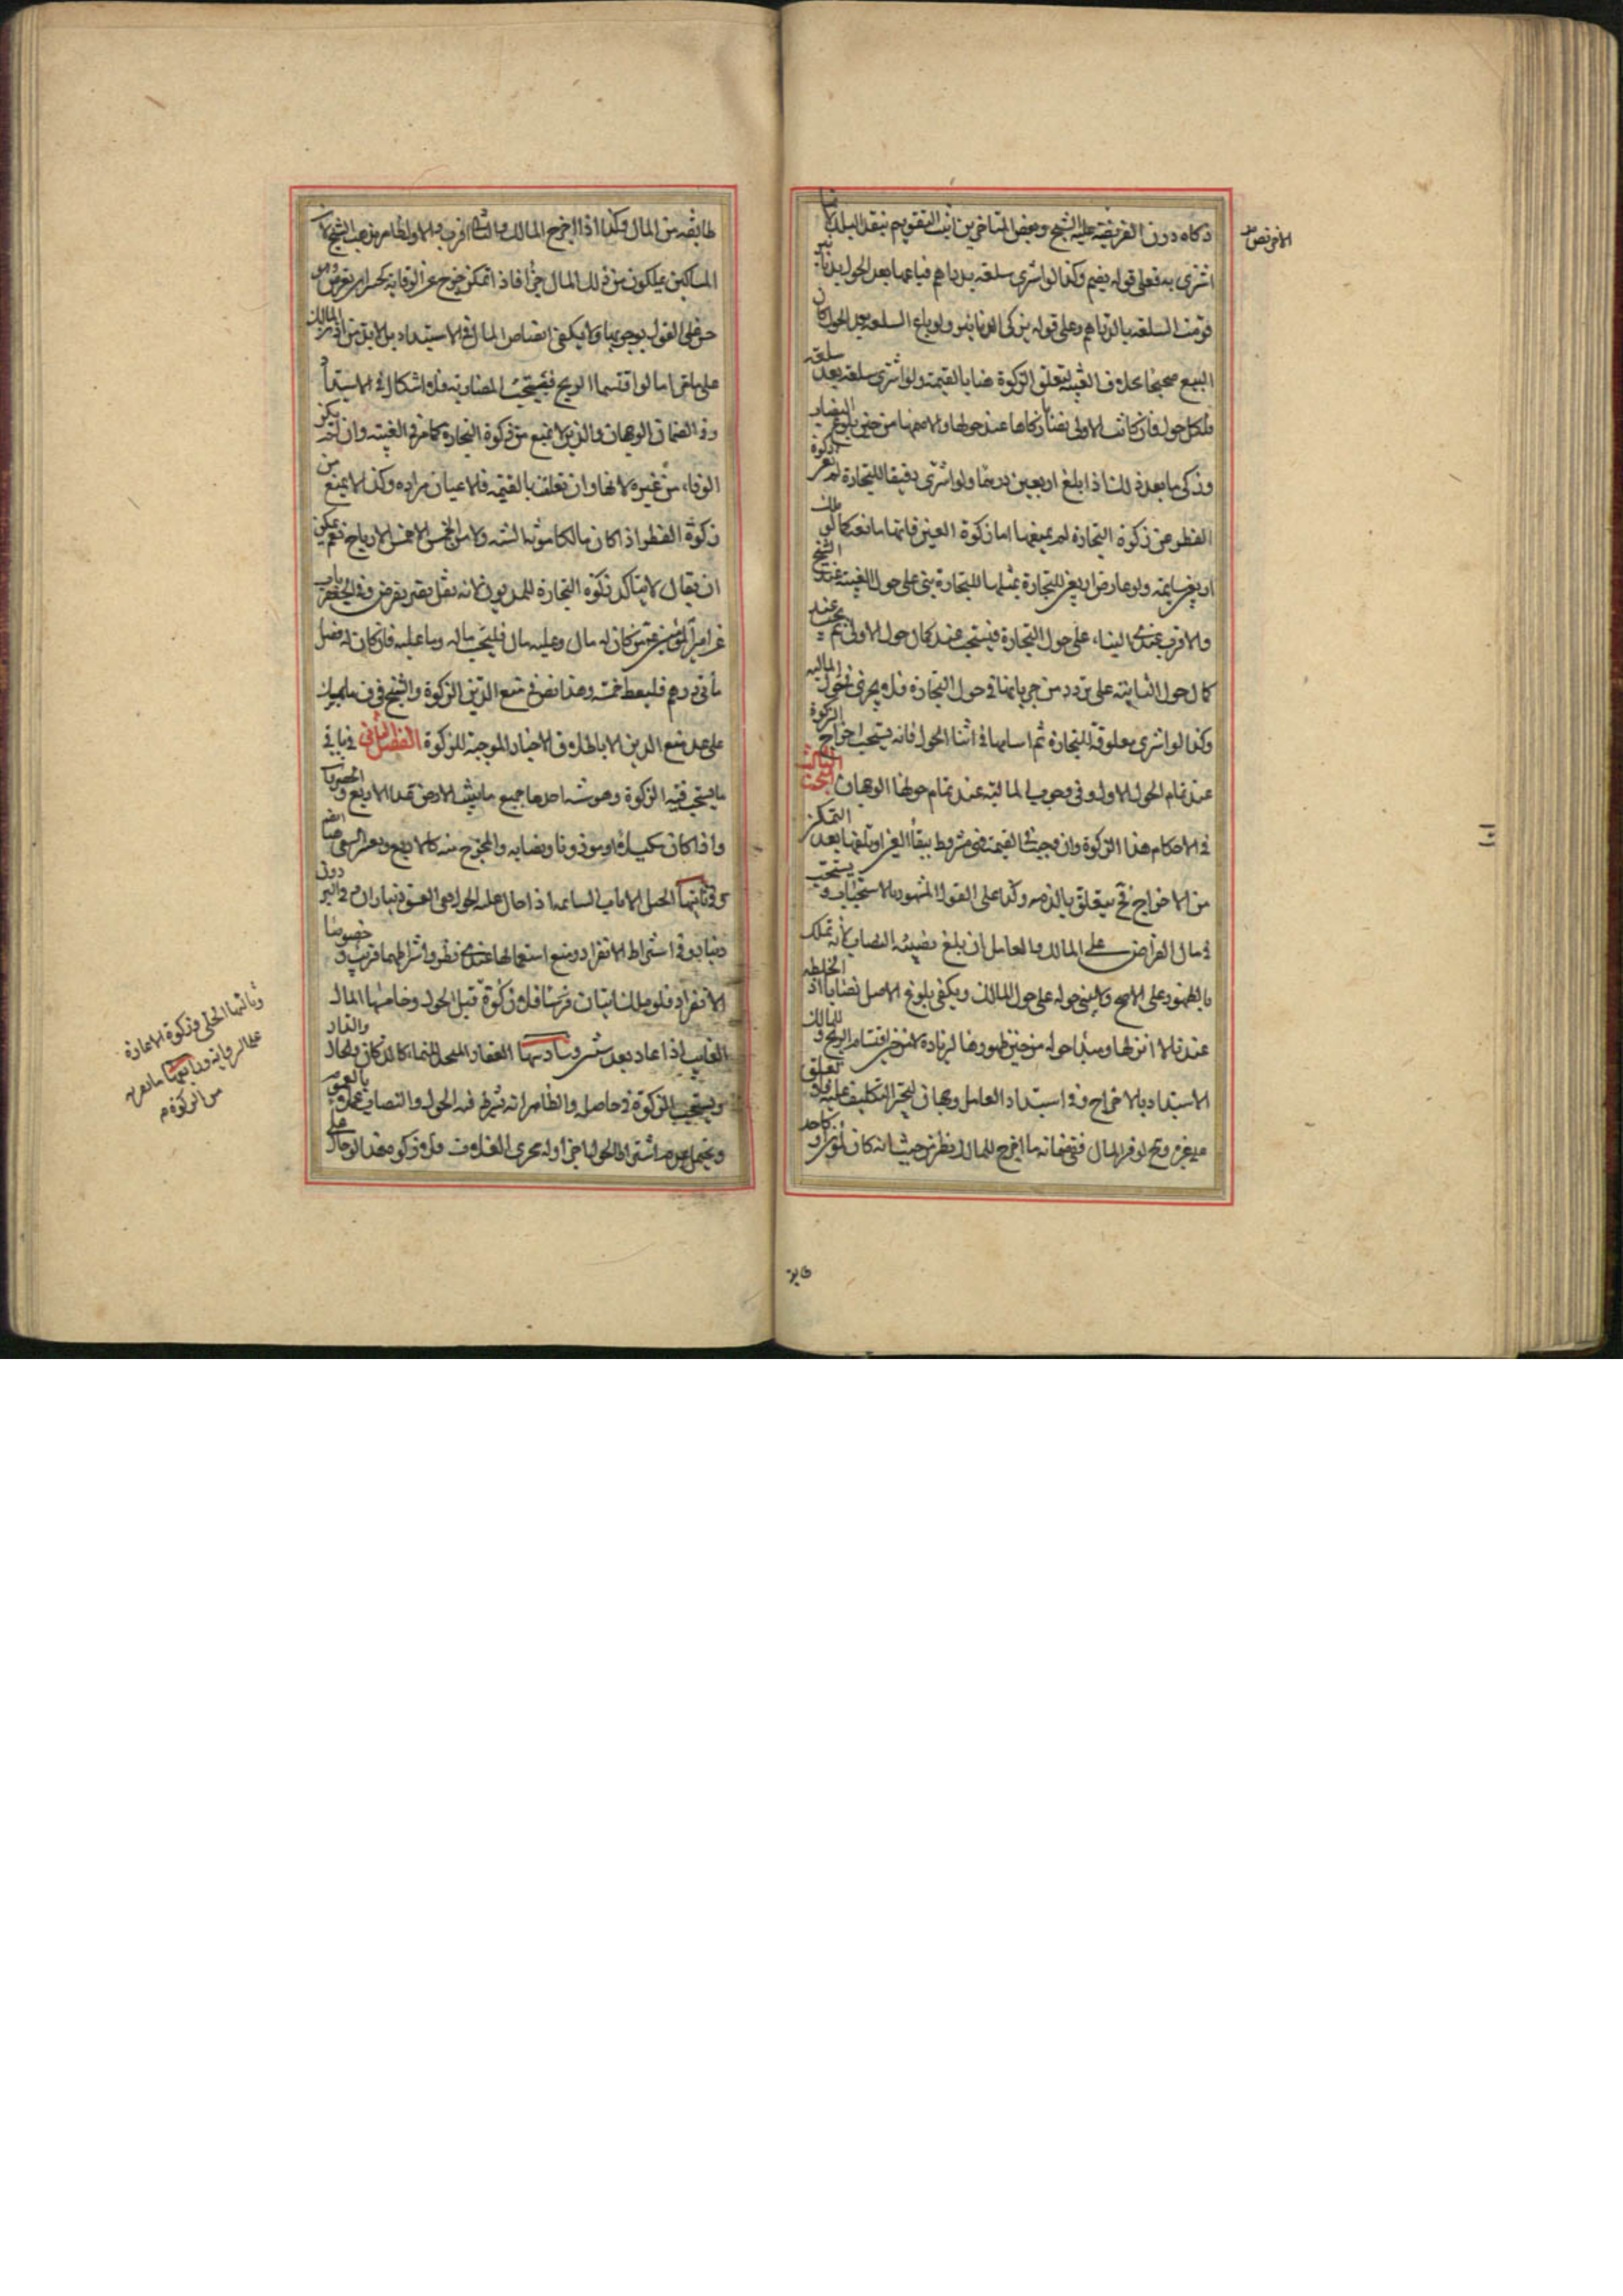 زكاه دون الفريضة عليه الشيخ وبعض المتاخرين اثبت التقويم بنقد البلد
اشترى به فعلى قوله يضم وكذا لو اشترى سلعة بدراهم فباعها بعد الحول بدنانير
قومت السلعة بالدراهم وعلى قوله يزكى الدنانير ولو باع السلعة بعد الحول كان
البيع صحيحا بخلاف العينية لتعلق الزكوة هنا بالقيمة ولو اشترى سلعة بعد سلعة
فلكل حول فان كانت الاولى نصابا زكاها عند حولها والا ضمها من حين بلوغ النصاب
وزكى ما بعده اذا بلغ اربعين درهما ولو اشترى رقيقا للتجارة لم زكوة
الفطر من زكوة التجارة لم يمنعها اما زكوة العين فانها مانعة كما لو ملك
اربعين سايمة ولو عارض اربعين للتجارة بمثلها للتجارة بنى على حول العينية عند الشيخ
والاقرب عندى البناء على حول التجارة فيستحب عند كمال حول الاولى ثم يجب عند
كمال حول الثانية على تردد من جريانها في حول التجارة فلا يجرى في حول المالية
وكذا لو اشترى معلوفة للتجارة ثم اسامها في اثنا الحول فانه يستحب اخراج الزكوة
عند تمام الحول الاول وفي وجوب المالية عند تمام حولها الوجهان البحث الثالث
في الاحكام هذا الزكوة وان وجبت في القيمة فهى مشروط ببقاء العين او تلفها بعد التمكن
من الاخراج فح يتعلق بالذمه وكذا على القول المشهور بالاستحباب ويستحب
في مال القراض على المالك والعامل ان بلغ نصيبه النصاب لانه تملك
بالظهور على الاصح ولا يبنى حوله على حول المالك ويكفى بلوغ الاصل نصابا اذ الخلطة
عندنا لا اثر لها ومبدا حوله من حين ظهورها لزيادة لا من حين اقتسام الربح وللمالك
الاستبداد بالاخراج وفي استبداد العامل وجهان لتنجز التكليف عليه فلا تعلق
بغيره وح لو خسر المال ففي ضمانه ما اخرج للمالك نظر من حيث انه كاخذ
الاقرب نص
طايفة من المال وكذا اذا اخرج المالك
المساكين يملكون من ذلك المال جزءا فاذا تمكن خرج عن الوقاية بخسران يعرض وهو
حق على القول بوجوبها ولا يكفى انضاض المال في الاستبداد بل لابد من اذن المالك
على ما مر اما لو اقتسما الربح فيستحب المضاربة فلا اشكال في الاستبداد
وفي الضمان الوجهان والدين لا يمنع من زكوة التجارة كما مر في العينية وان لم يكن
الوفاء من غيره لانها وان تعلقت بالقيمة فالاعيان مراده وكذا لا يمنع من
زكوة الفطر اذا كان مالكا مؤنه السنه ولا من الخمس الا خمس الارباح نعم يمكن
ان يقال لا يتاكد زكوة التجارة للمديون لانه نفل يضر بفرض وفي الجعفريات
عن امير المؤمنين ع من كان له مال وعليه مال فليحسب ماله وما عليه فان كان له فضل
مأتى درهم فليعط خمسة وهذا نص في منع الدين الزكوة والشيخ في ف ما يحيل
على عدم منع الدين الا باطلاق الاخبار الموجبة للزكوة الفصل الثانى في باقى
ما يستحب فيه الزكوة وهو ستة احدها جميع ما ينبت الارض عدا الاربع والخضروات
واذا كان مكيلا او موزونا ونصابه والمخرج منه كالاربع وبعد السقى
وثانيها الخيل الاناث السايمة اذا حال عليها الحول ففي العتيق ديناران وفي البرذون
دينار وفي اشتراط الانفراد ومنع استعمالها عندى نظر واشتراطهما قريب خصوصا
الانفراد فلو ملك اثنان فرسا فلا زكوة قبل الحول وخامسها المال
الغايب اذا عاد بعد سنة وسادسها العقار المتخذ للنماء كالدكان والخان
ويستحب الزكوة في حاصله والظاهر انه يشترط فيه الحول والنصاب عملا بالعموم
ويحتمل عدم اشتراط الحول اجراء له مجرى الغلات
وثالثها الحلى وزكوة الاعارة
على الرواية ورابعها ما يفر به
من الزكوة م
طايفة
١٠١